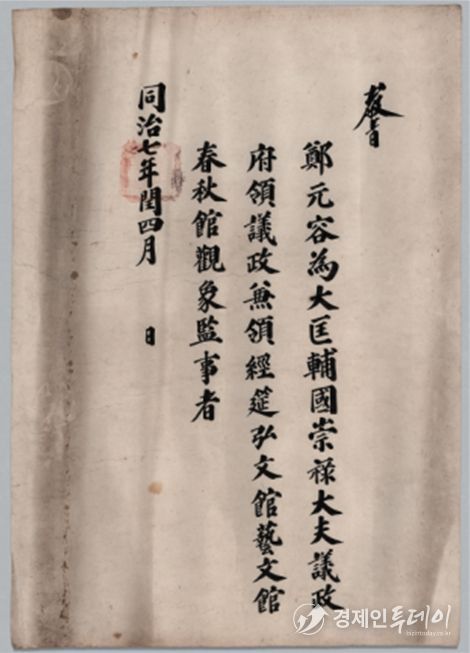 敎旨
鄭元容為大匡輔國崇祿大夫議政
府領議政兼領經筵弘文館藝文館
春秋館觀象監事者
同治七年閏四月 日
경제인투데이